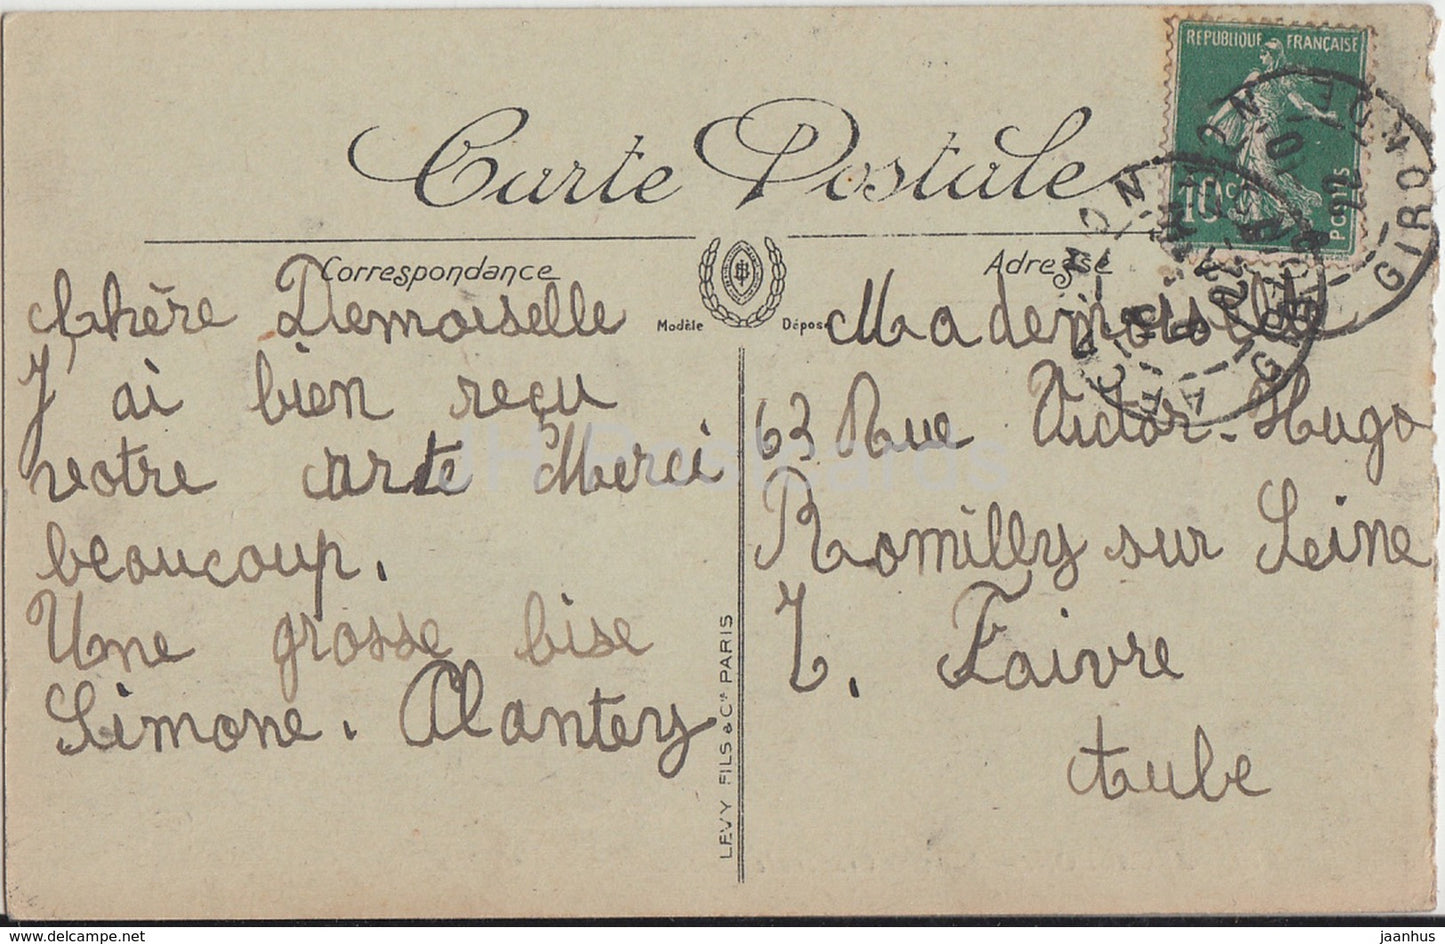 Carte Postale
RÉPUBLIQUE FRANÇAISE
10c
POSTES
GIRONDE
Correspondance
Adresse
Modèle Déposé
Chère Demoiselle
J'ai bien reçu
votre carte Merci
beaucoup.
Une grosse bise
Simone. Alantery
Mademoiselle
63 Rue Victor-Hugo
Romilly sur Seine
Y. Faivre
Aube
LEVY FILS & Cie PARIS
JH Postcards
hippostcard.com
jaanhus